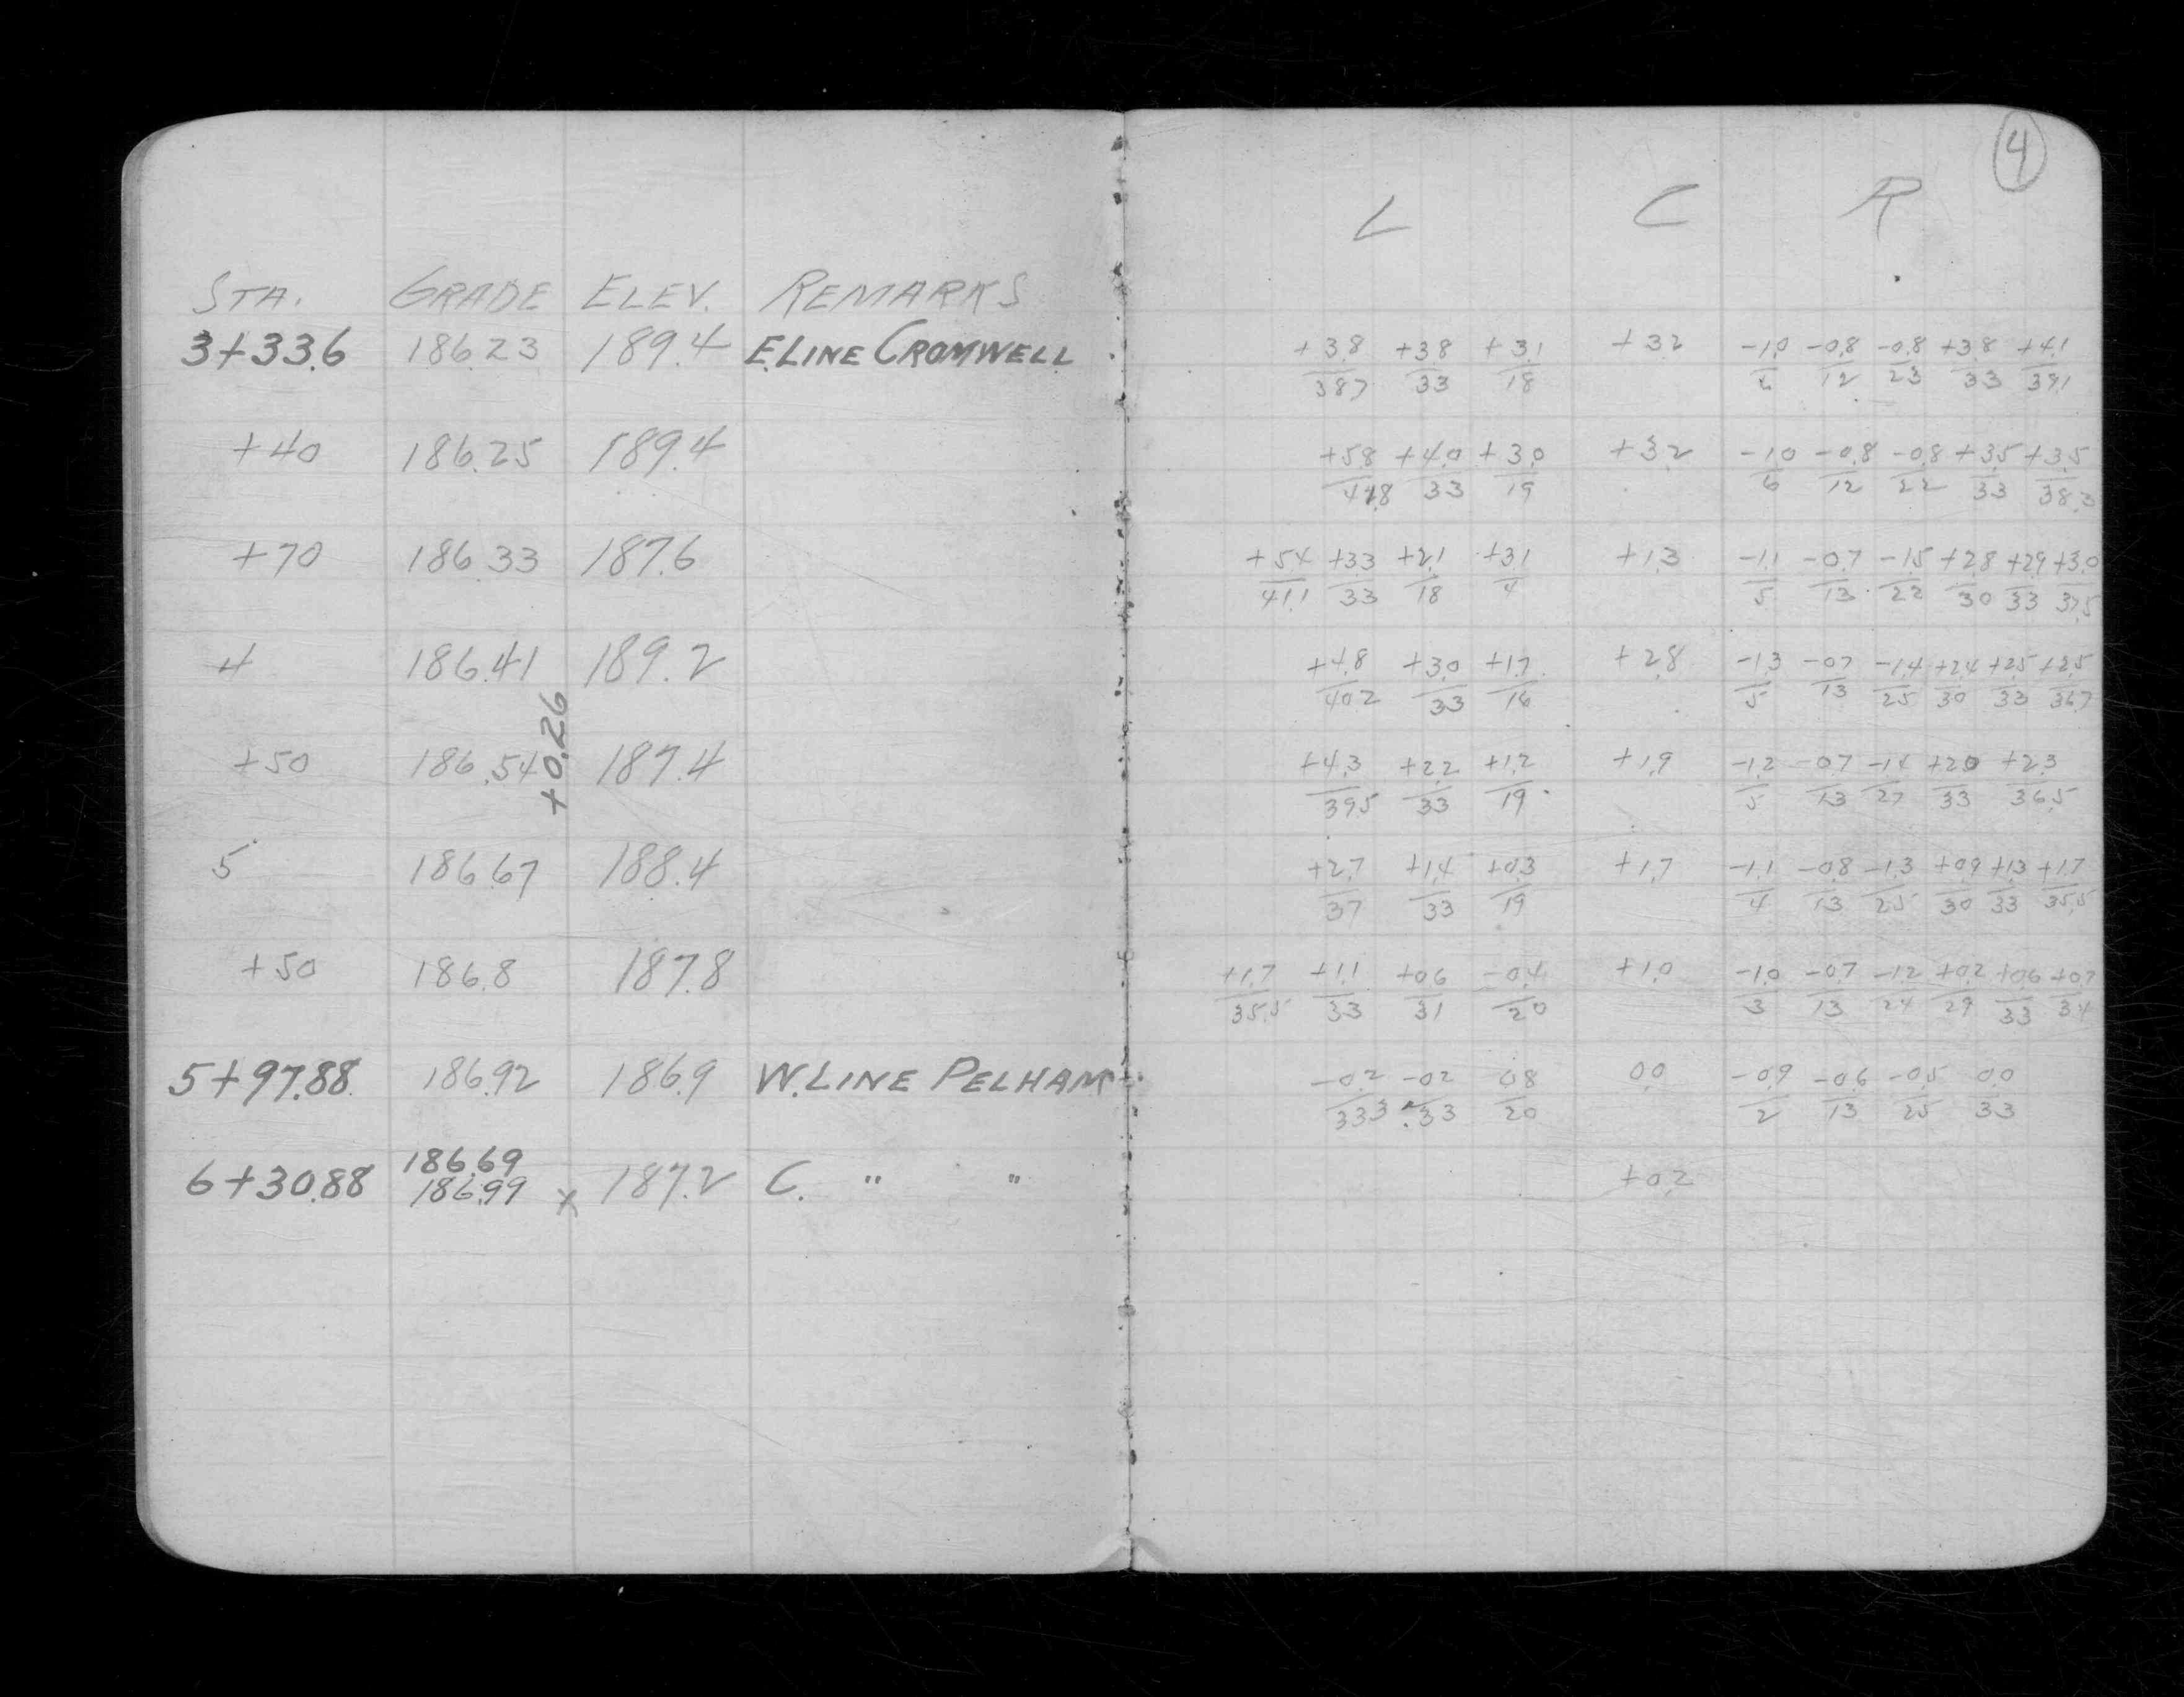 4
L C R
STA. GRADE ELEV. REMARKS
3+33.6 186.23 189.4 E.LINE CROMWELL +3.8/38.7 +3.8/33 +3.1/18 +3.2 -1.0/6 -0.8/12 -0.8/23 +3.8/33 +4.1/39.1
+40 186.25 189.4 +5.8/41.8 +4.0/33 +3.0/19 +3.2 -1.0/6 -0.8/12 -0.8/22 +3.5/33 +3.5/38.3
+70 186.33 187.6 +5.4/41.1 +3.3/33 +2.1/18 +3.1/4 +1.3 -1.1/5 -0.7/13 -1.5/22 +2.8/30 +2.9/33 +3.0/37.5
4 186.41 189.2 +4.8/40.2 +3.0/33 +1.7/16 +2.8 -1.3/5 -0.7/13 -1.4/25 +2.4/30 +2.5/33 +2.5/36.7
+0.26
+50 186.54 187.4 +4.3/39.5 +2.2/33 +1.2/19 +1.9 -1.2/5 -0.7/13 -1.4/27 +2.0/33 +2.3/36.5
5 186.67 188.4 +2.7/37 +1.4/33 +0.3/19 +1.7 -1.1/4 -0.8/13 -1.3/25 +0.9/30 +1.3/33 +1.7/35.5
+50 186.8 187.8 +1.7/35.5 +1.1/33 +0.6/31 -0.4/20 +1.0 -1.0/3 -0.7/13 -1.2/24 +0.2/29 +0.6/33 +0.7/34
5+97.88 186.92 186.9 W.LINE PELHAM -0.2/33.3 -0.2/33 0.8/20 0.0 -0.9/2 -0.6/13 -0.5/25 0.0/33
186.69
6+30.88 186.99 x 187.2 C. " " +0.2